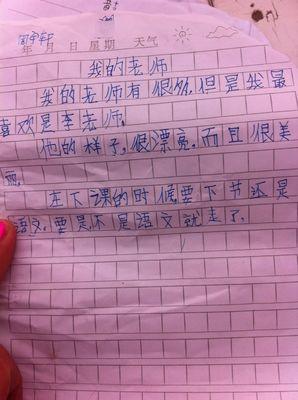 年 月 日 星期 天气
我的老师
我的老师有很多但是我最
喜欢是李老师.
他的样子,很漂亮,而且很美
丽.
在下课的时候,要下节还是
语文,要是不是语文就走了.